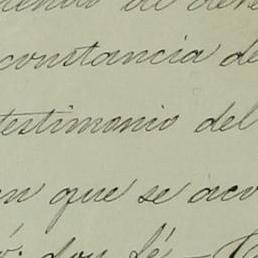 de
constancia de
testimonio del
en que se aco
don fé